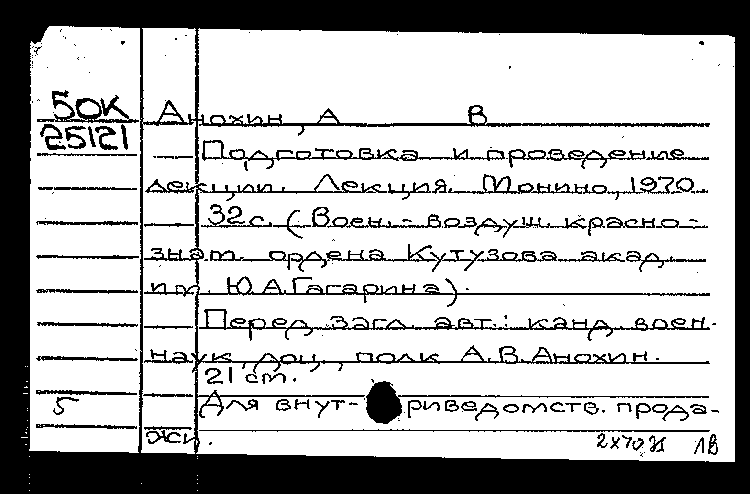 50К Анохин, А В
25121
Подготовка и проведение
лекции. Лекция. Монино, 1970.
32с. (Воен.- воздуш. красно-
знам. ордена Кутузова акад.
им. Ю.А.Гагарина).
Перед загл. авт.: канд. воен.
наук, доц., полк А.В.Анохин.
21 cm.
5 Для внут- риведомств. прода-
жи.
1В